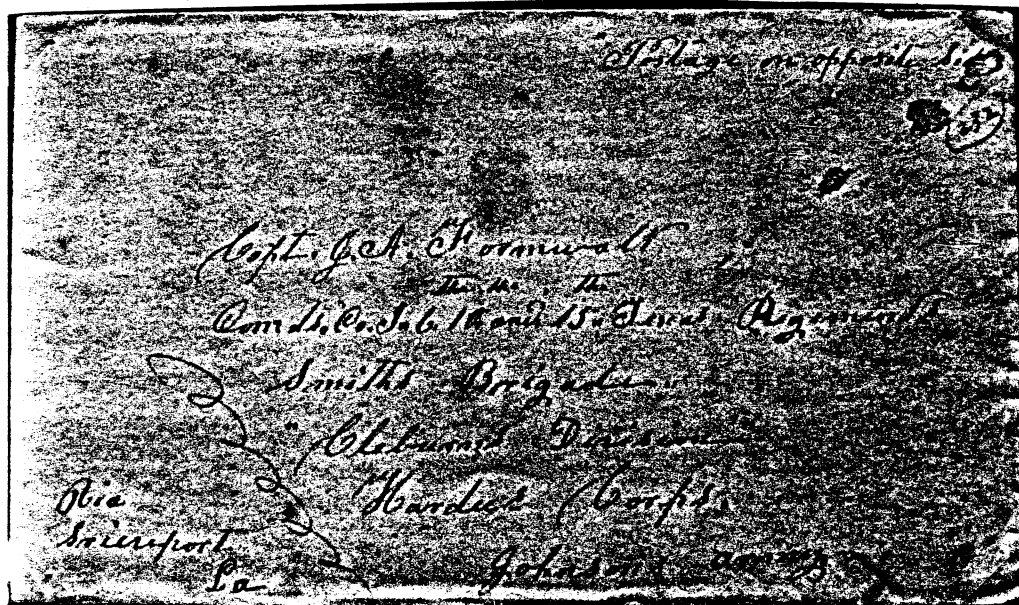 Postage on opposite side
Capt. J. A. Formwalt
ths ths ths
Comdg. Co. I. 6. 10 and 15. Texas Regiments
Smiths Brigade.
Cleburnes Division
Hardees Corps.
Johnsons army
Via
Srieveport
La